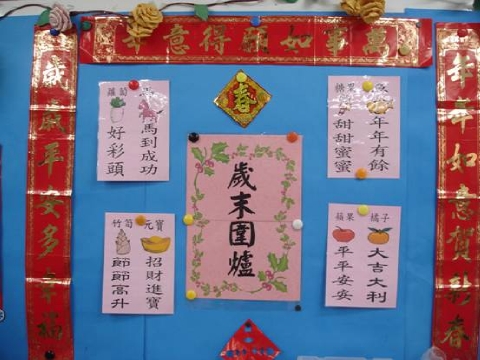 萬事如願得意年
年年如意賀新春
歲歲平安多幸福
春
歲末圍爐
蘿蔔
好彩頭
馬到成功
糖果
甜甜蜜蜜
魚
年年有餘
竹筍
節節高升
元寶
招財進寶
蘋果
平平安安
橘子
大吉大利